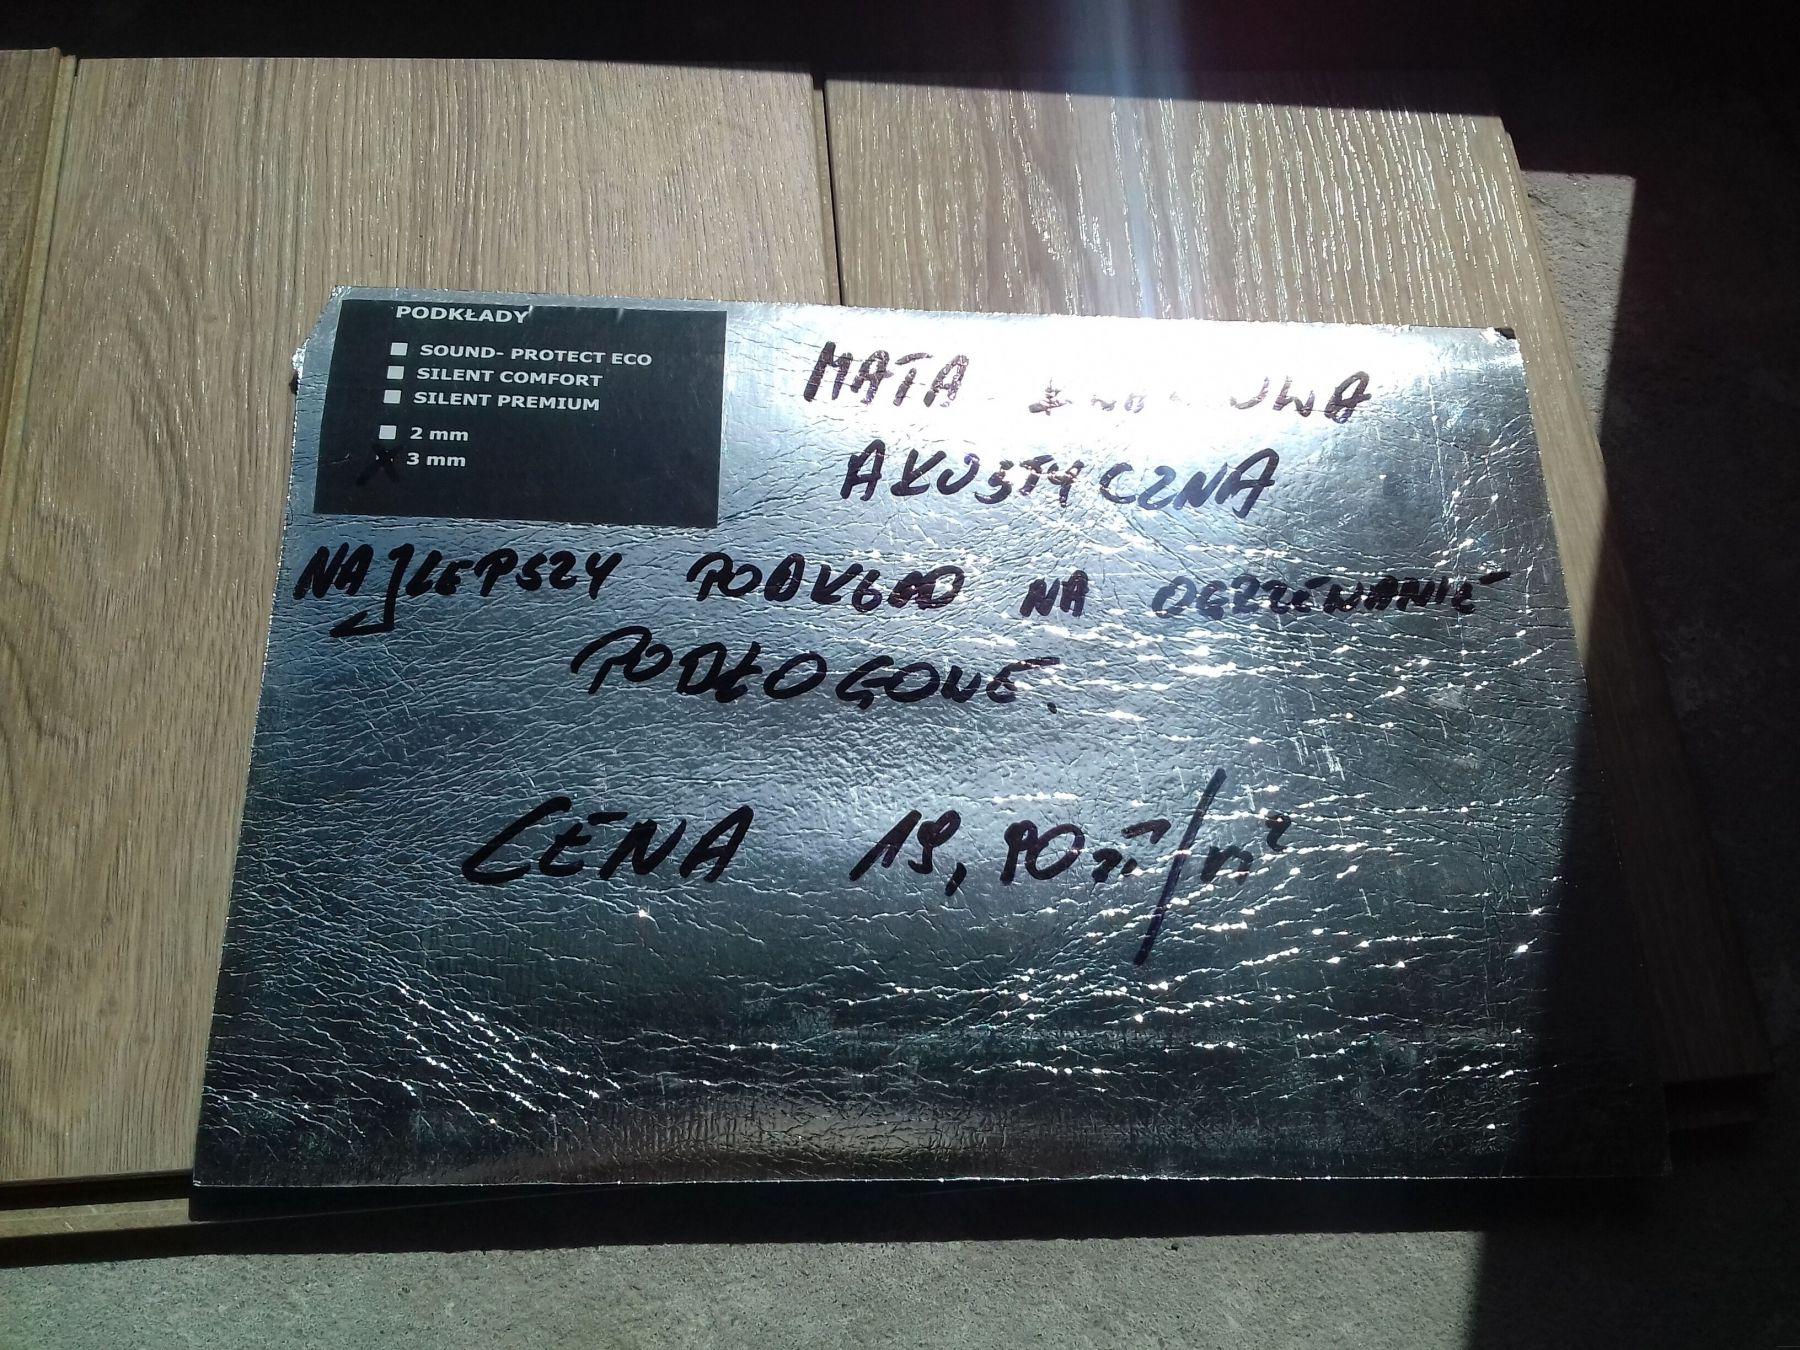 PODKŁADY
SOUND- PROTECT ECO
SILENT COMFORT
SILENT PREMIUM
2 mm
3 mm
MATA
AKUSTYCZNA
NAJLEPSZY PODKŁAD NA OGRZEWANIE
PODŁOGOWE.
CENA 19,90 zł/m²